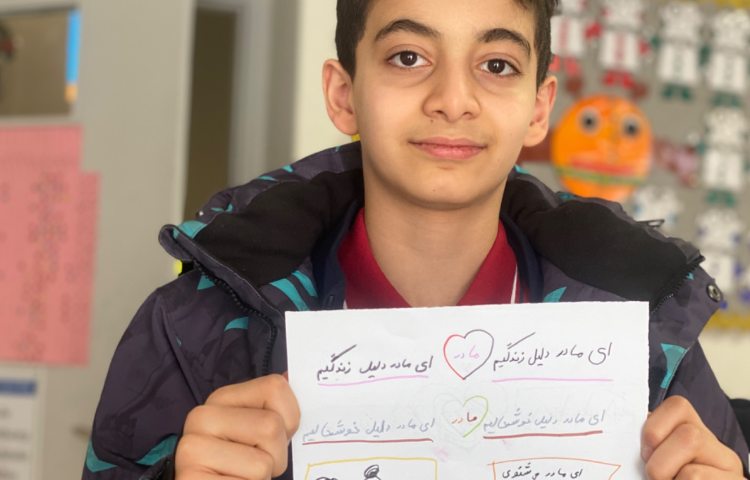 ای مادر دلیل زندگیم مادر ای مادر دلیل زندگیم
ای مادر دلیل خوشحالیم مادر ای مادر دلیل خوشحالیم
ای مادر